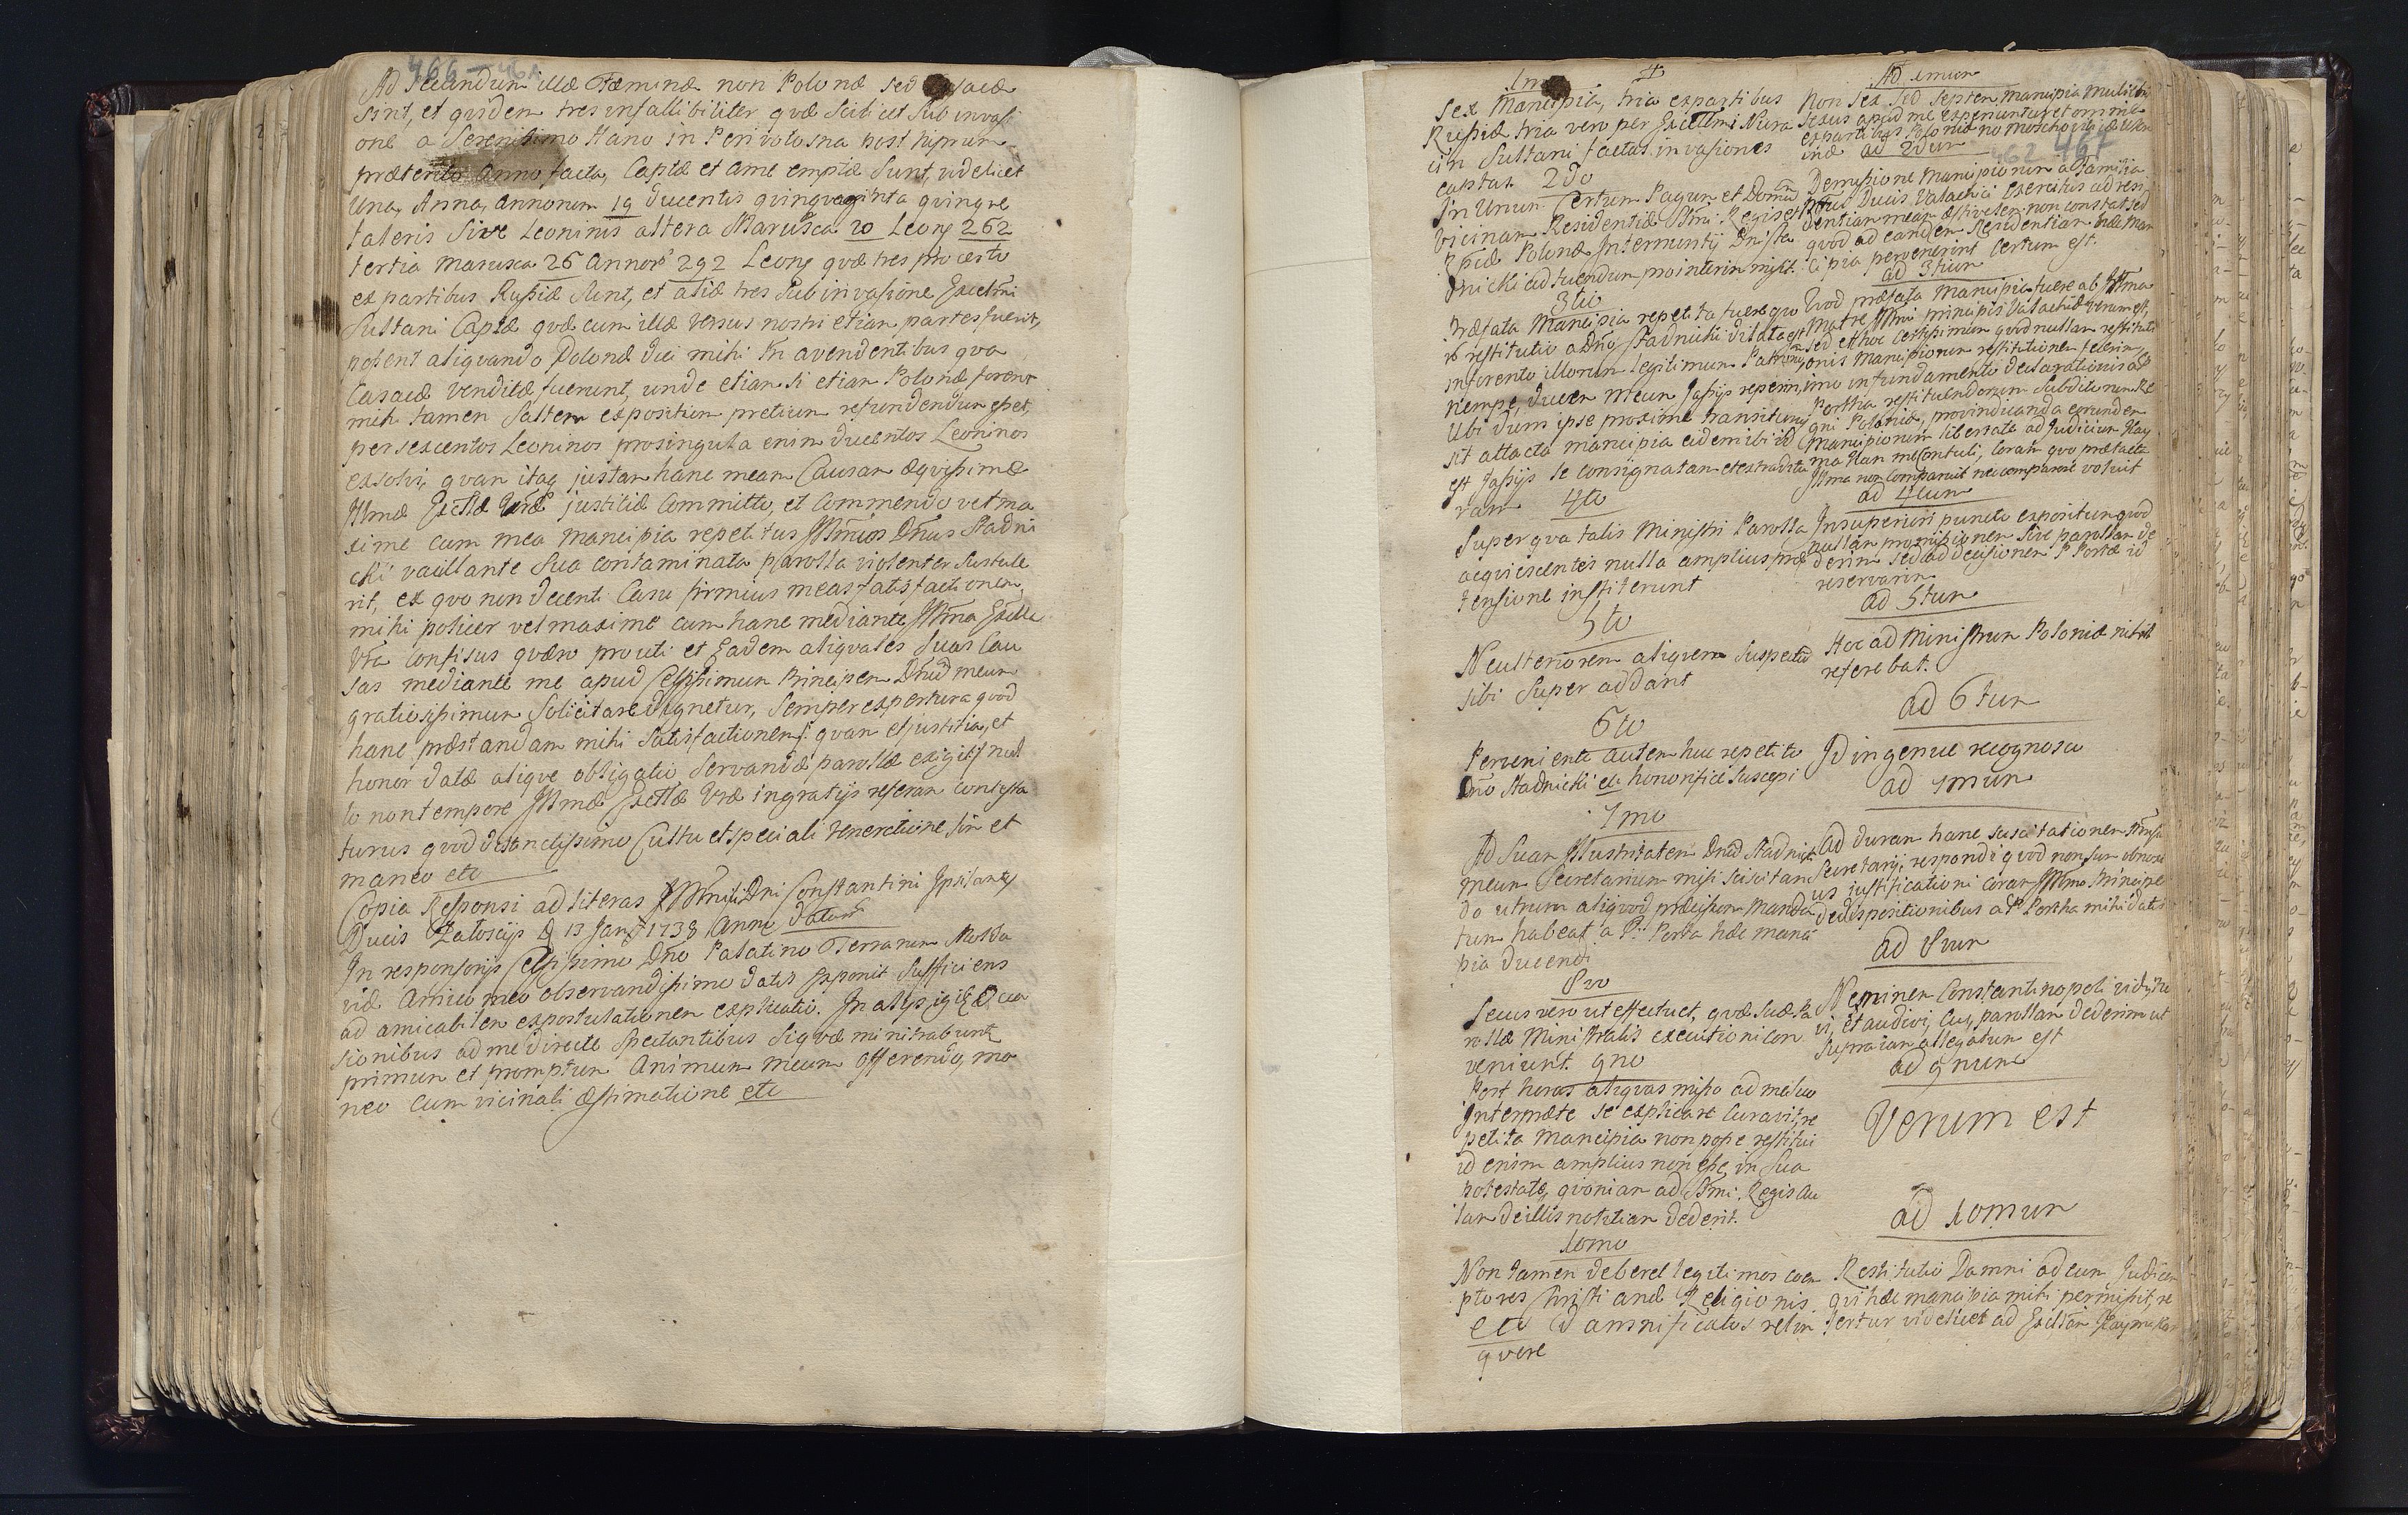 466
Ad Secundum illæ Fæminæ non Polonæ sed
sint, et quidem tres infallibiliter quæ scilicet sub invasi
one a Serenissimo Hano in Perivolosna post hiprum
præterito Anno facta, Captæ et a me emptæ sunt, videlicet
Una, Anna, annorum 19 ducentis quinquaginta quinque
taleris sive Leoninis altera Maruska 20 Leong 262
tertia Marusca 26 Annor 292 Leong quæ tres pro certo
ex partibus Russiæ sunt, et aliæ tres sub invasione Excelmi
Sultani Captæ quæ cum illæ versus nostri etiam partes fuerit,
possent aliquando Polonæ dici mihi tn a vendentibus qua
Casacæ venditæ fuerunt, unde etiam si etiam Polonæ forent
mihi tamen saltem expositum pretium refundendum esset,
per sexcentos Leoninos pro singula enim ducentos Leoninos
exsolvi, quam itaq justam hanc meam Causam æquissimæ
Illmæ Excellæ Vræ justitiæ committo, et commendo vel ma
xime cum mea mancipia repetitus Illmus Dnus Stadni
cki vacillante sua contaminata parolla violenter sustule
rit, ex quo non decenti Casu firmius meas satisfactionem,
mihi policer vel maxime cum hanc mediante Illma Excella
Vra confisus quæro prouti et Eadem aliquales suas Cau
sas mediante me apud Celsissimum Principem Dnum meum
gratiosissimum solicitare dignetur, semper expertura quod
hanc præstandam mihi satisfactionem quam et justitia, et
honor datæ atque obligatio servandæ parollæ exigit nul
lo non tempore Illmæ Excellæ Vræ ingratijs referam contesta
turus quod distinctissimo Cultu et speciali Veneratione sim et
maneo etc
Copia Responsi ad literas Illmi Dni Constantini Ipsilanty
Ducis Zaloscijs D 13 Jan 1738 Anno datum
In responsorijs Celsissimo Dno Palatino Terrarum Molda
viæ Amico meo observandissimo datis exponit sufficiens
ad amicabilem expostulationem explicatio. In alijs igitur Occa
sionibus ad me directe spectantibus siquæ mi nitrabunt
primum et promptum Animum meum offerendo, ma
neo cum vicinali æstimatione etc
1mo
Sex Mancipia, tria ex partibus
Russiæ tria vero per Excellmi Nura
din Sultani factas invasiones
captas 2do
In Unum Certum Pagum et Domum
Vicinam Residentiæ Illmi Regis et
Rpcæ Polonæ Internuntij Dni Sta
dnicki ad tuendum pro interim misit.
3tio
Præfata Mancipia repetita fuere quo
rum restitutio a Dno Stadnicki dilata est
inferento illorum legitimum Patronum,
nempe, ducem meum Jassijs reperim,
Ubi dum ipse proxime transiturus
sit attacta mancipia eidem ibi id
est Jassijs se consignatam et extraditu
ram 4to
Super qua talis Ministri Parolla
acquiescentes nulla amplius præ
tensione institerunt
5to
Neulteriorem aliquem suspectum
sibi super addant
6to
Perveniente autem huc repetito
Dno Stadnicki etc honorifice suscepi
7mo
Ad suam Illustritatem Dnum Stadnick
meum Secretarium misi sciscitan
do utrum aliquod præcisum manda
tum habeat a P. Porta hæc manci
pia ducendi
8vo
Secus vero ut effectuet, quæ suæ pa
rollæ Ministralis executioni con
veniunt. 9no
Post horas aliquas misso ad me suo
Interprete se explicare curavit, re
petita mancipia non posse restitui
id enim amplius non esse in sua
potestate, quoniam ad Illmi. Regis Au
lam de illis notitiam dederit.
10mo
Non tamen deberet legitimos coem
ptores Christianæ Religionis
etc damnificatos relin
quere
Ad 1mum
Non sex sed septem mancipia mulieb
Sexus apud me experiuntur et omnia
ex partibus Poloniæ no Moschoviticæ Ukra
inæ ad 2dum
462 467
Demissione mancipiorum a Familia
Ducis Valachici Exercitus ad resi
dentiam meam æstivetem non constat sed
quod ad eandem Residentiam hæc man
cipia pervenerint certum est.
ad 3tium
Quod præfata mancipia fuere ab Illma
Matre Illmi principis Valachiæ verum est,
sed et hoc certissimum quod nullam restituti
onis mancipiorum restitutionem fecerim,
imo in fundamento declarationis a P
Portha restituendorum subditorum Re
gni Poloniæ, pro vindicanda eorundem
mancipiorum libertate ad Judicium Kay
ma Kam me contuli, coram quo præfacta
Illma non comparuit nec comparare voluit
ad 4tum
In superiori puncto expositum quod
nullam promissionem sive parollam de
derim sed ad decisionem P. Portæ id
reservarim
ad 5tum
Hoc ad Ministrum Poloniæ nihil
referebat.
ad 6tum
Id ingenue recognosco
ad 7mum
Ad duram hanc suscitationem
Secretarij respondi quod non sum obnoxi
us justificationi coram Illmo Principe
de dispositionibus a P. Portha mihi datis
ad 8vum
Neminem Constantinopoli vidi,
et audivi, cui, parollam dederim ut
supra iam allegatum est
ad 9num
Verum est
ad 10mum
Restitutio Damni ad eum Judicem
qui hæc mancipia mihi permisit, re
fertur videlicet ad Excellm Kayma Kam